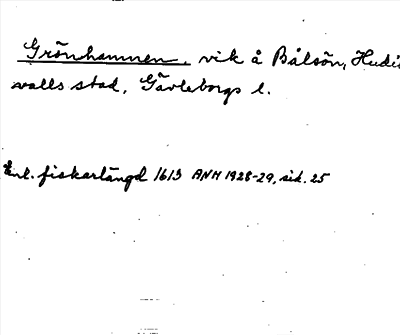 Grönhamnen, vik å Bålsön, Hudiks
valls stad, Gävleborgs l.
Enl. fiskarlängd 1613 ANH 1928-29, sid. 25